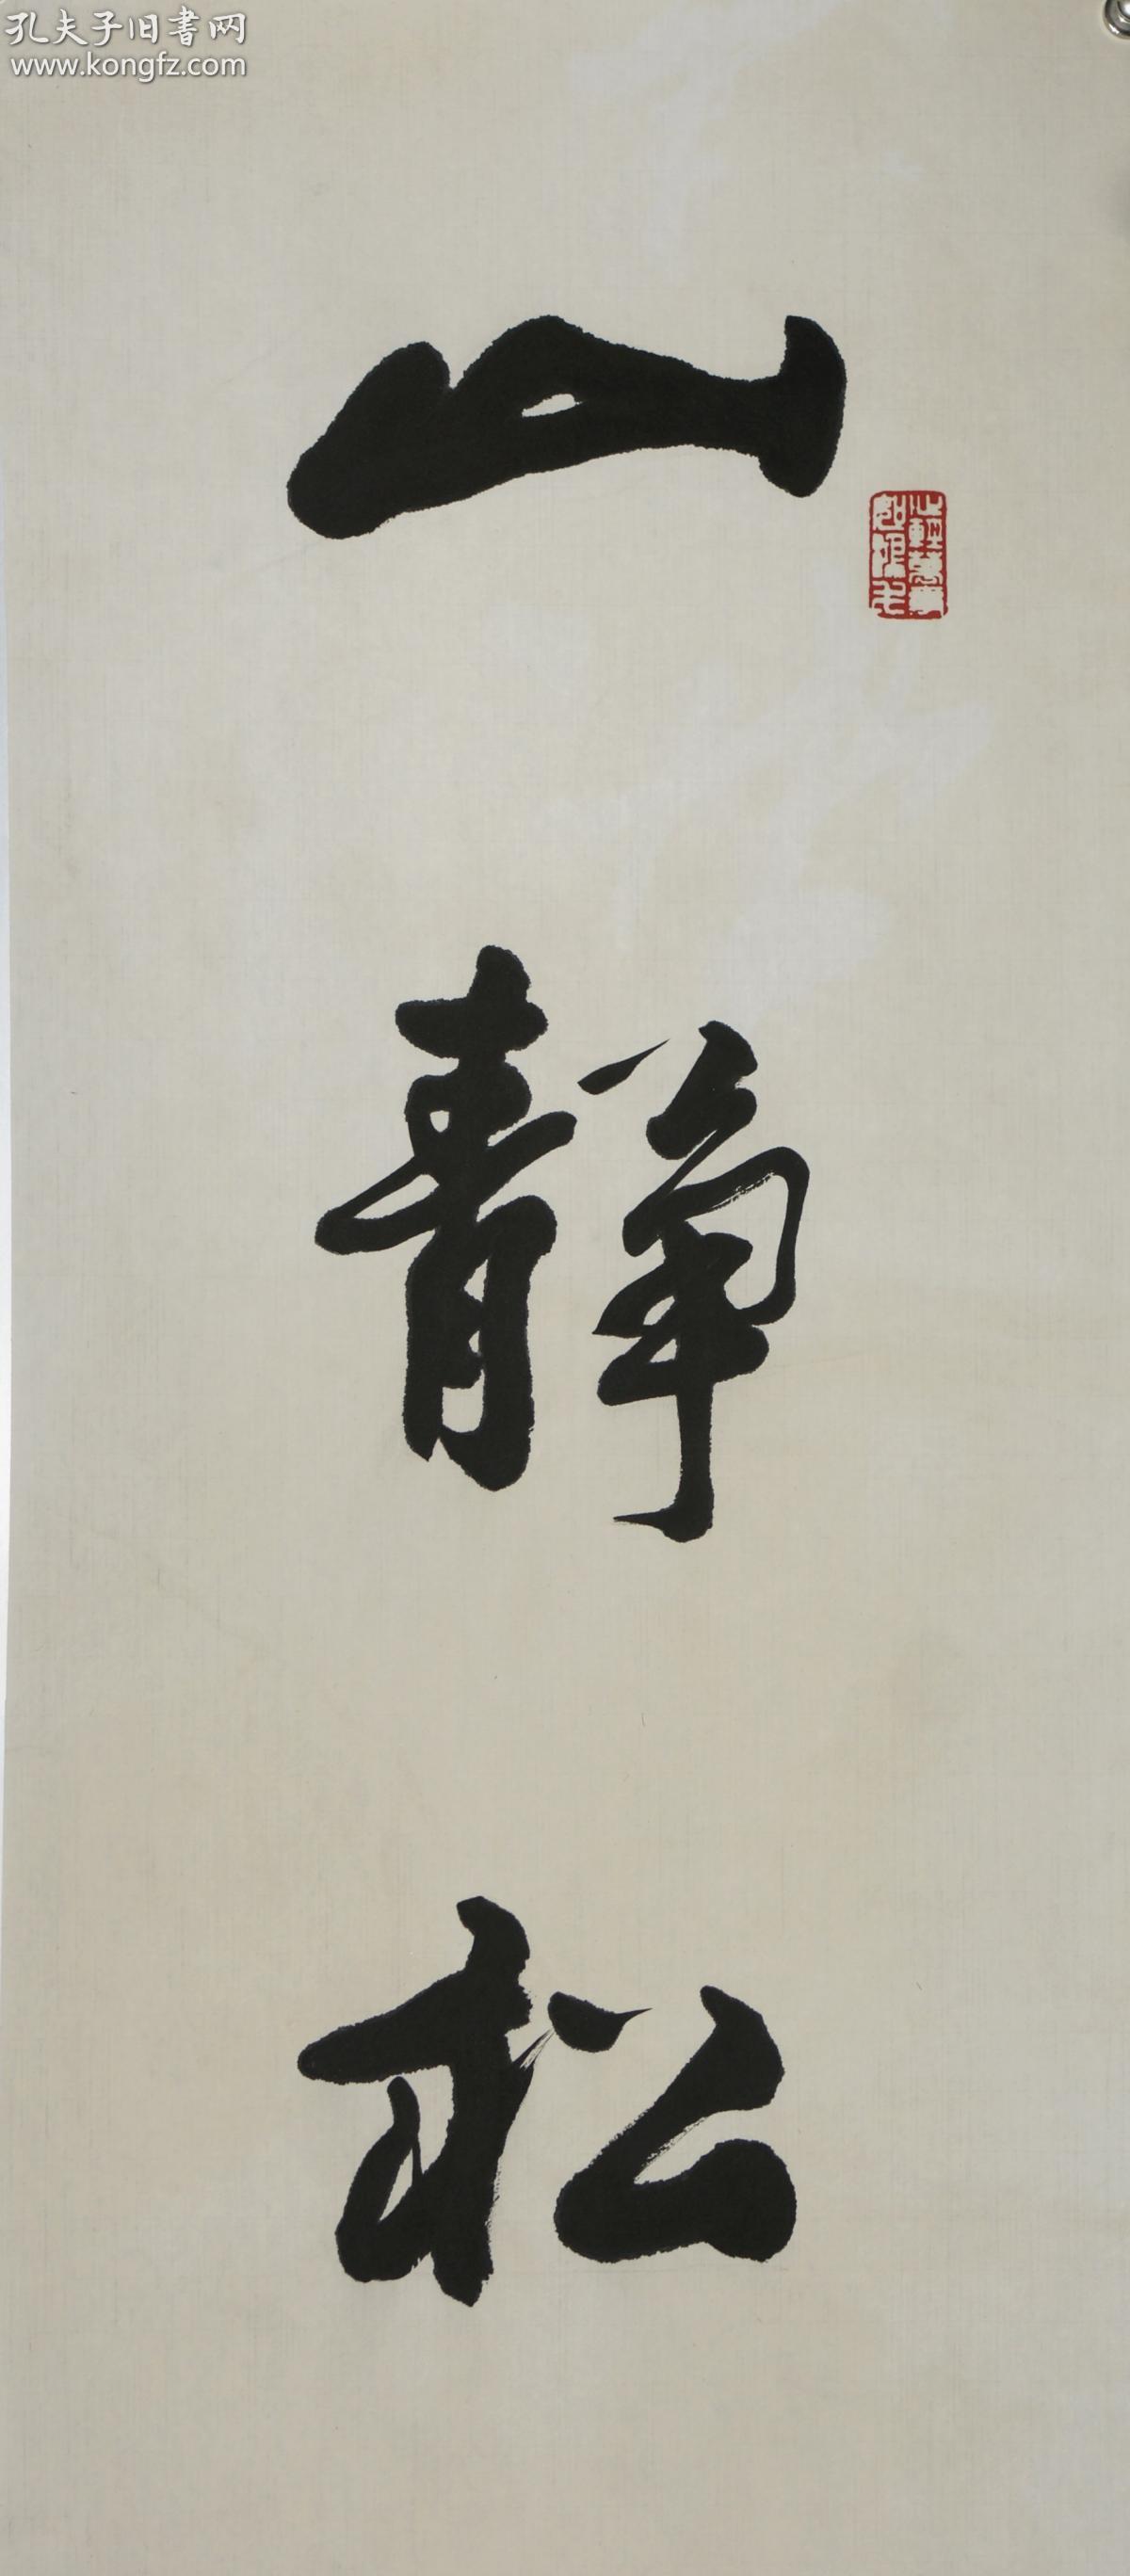 孔夫子旧書网
www.kongfz.com
山靜松